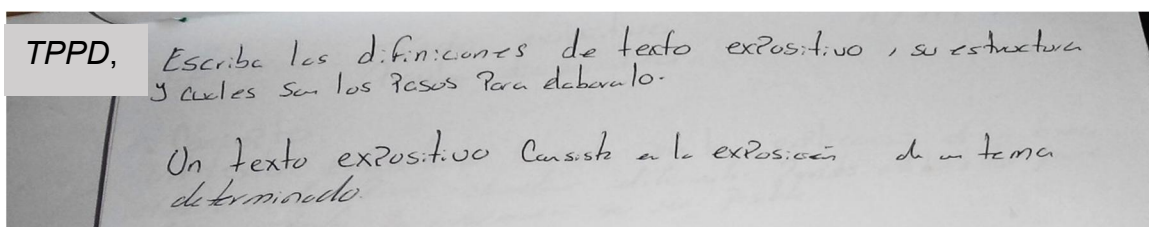 TPPD,
Escriba las difiniciones de texto expositivo, su estructura
y cuales son los Pasos Para elaboralo.
Un texto expositivo Consiste en la exposición de un tema
determinado.